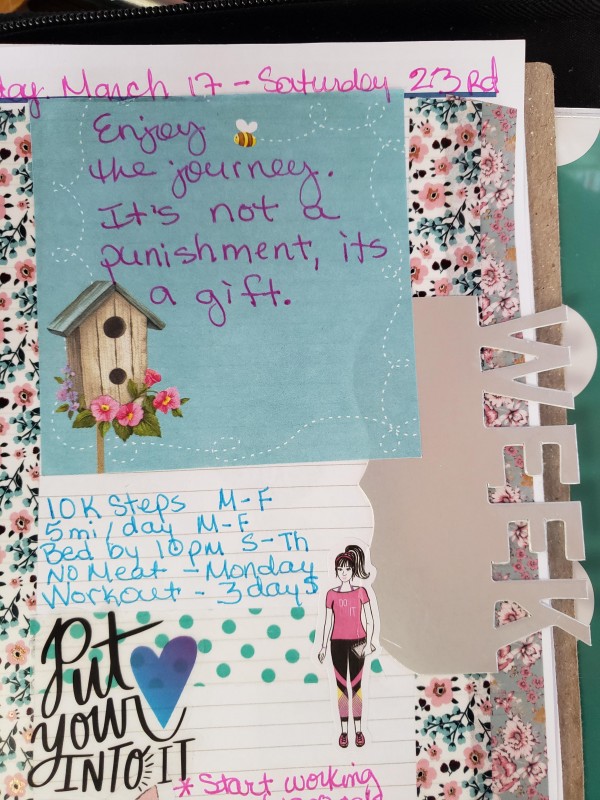 day March 17 - Saturday 23rd
Enjoy
the journey.
It's not a
punishment, its
a gift.
WEEK
10K Steps M-F
5mi/day M-F
Bed by 10pm S-Th
No Meat - Monday
Workout - 3 days
DO IT
Put
your
INTO IT
*Start working